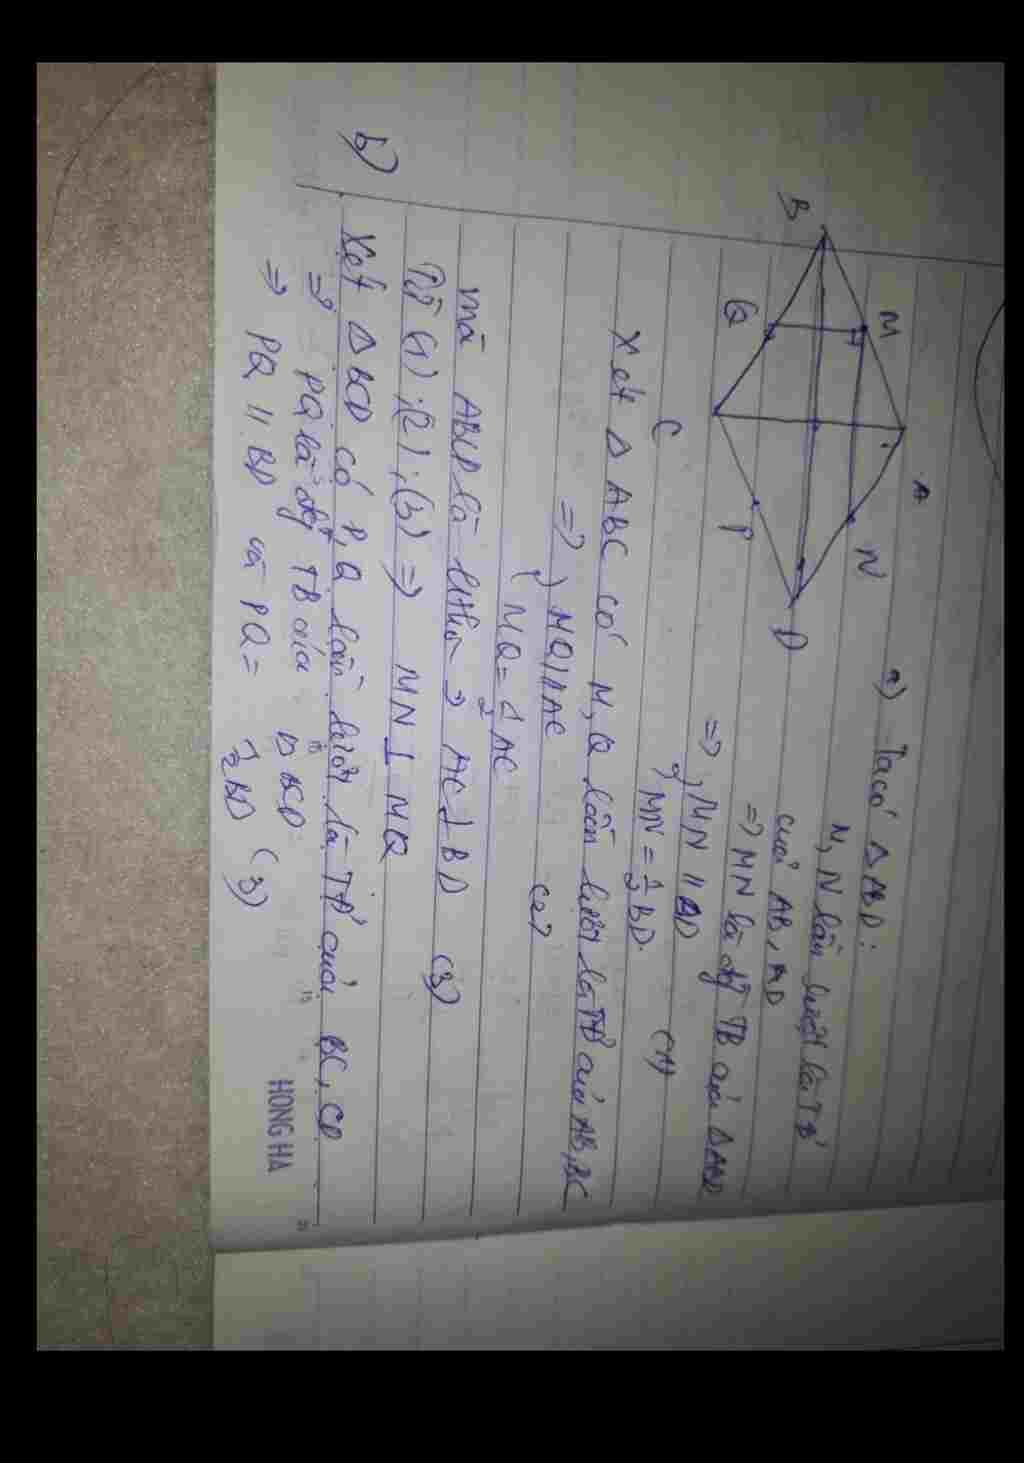 A
M
N
B
D
Q
P
C
a) Ta có Δ ABD:
M, N lần lượt là TĐ
của AB, AD
=> MN là đg TB của Δ ABD
=> MN // BD
MN = 1/2 BD. (1)
Xét Δ ABC có M, Q lần lượt là TĐ của AB, BC
=> MQ // AC
MQ = 1/2 AC (2)
mà ABCD là hthoi => AC ⊥ BD (3)
Từ (1); (2); (3) => MN ⊥ MQ
b) Xét Δ BCD có P, Q lần lượt là TĐ của BC, CD
=> PQ là đg TB của Δ BCD
=> PQ // BD và PQ = 1/2 BD (3)
15
HONG HA